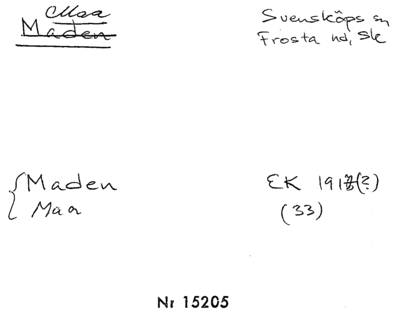 Maa
Maden
Svensköps sn
Frosta hd, Sk
Maden
Maa
EK 1917(?)
(33)
Nr 15205